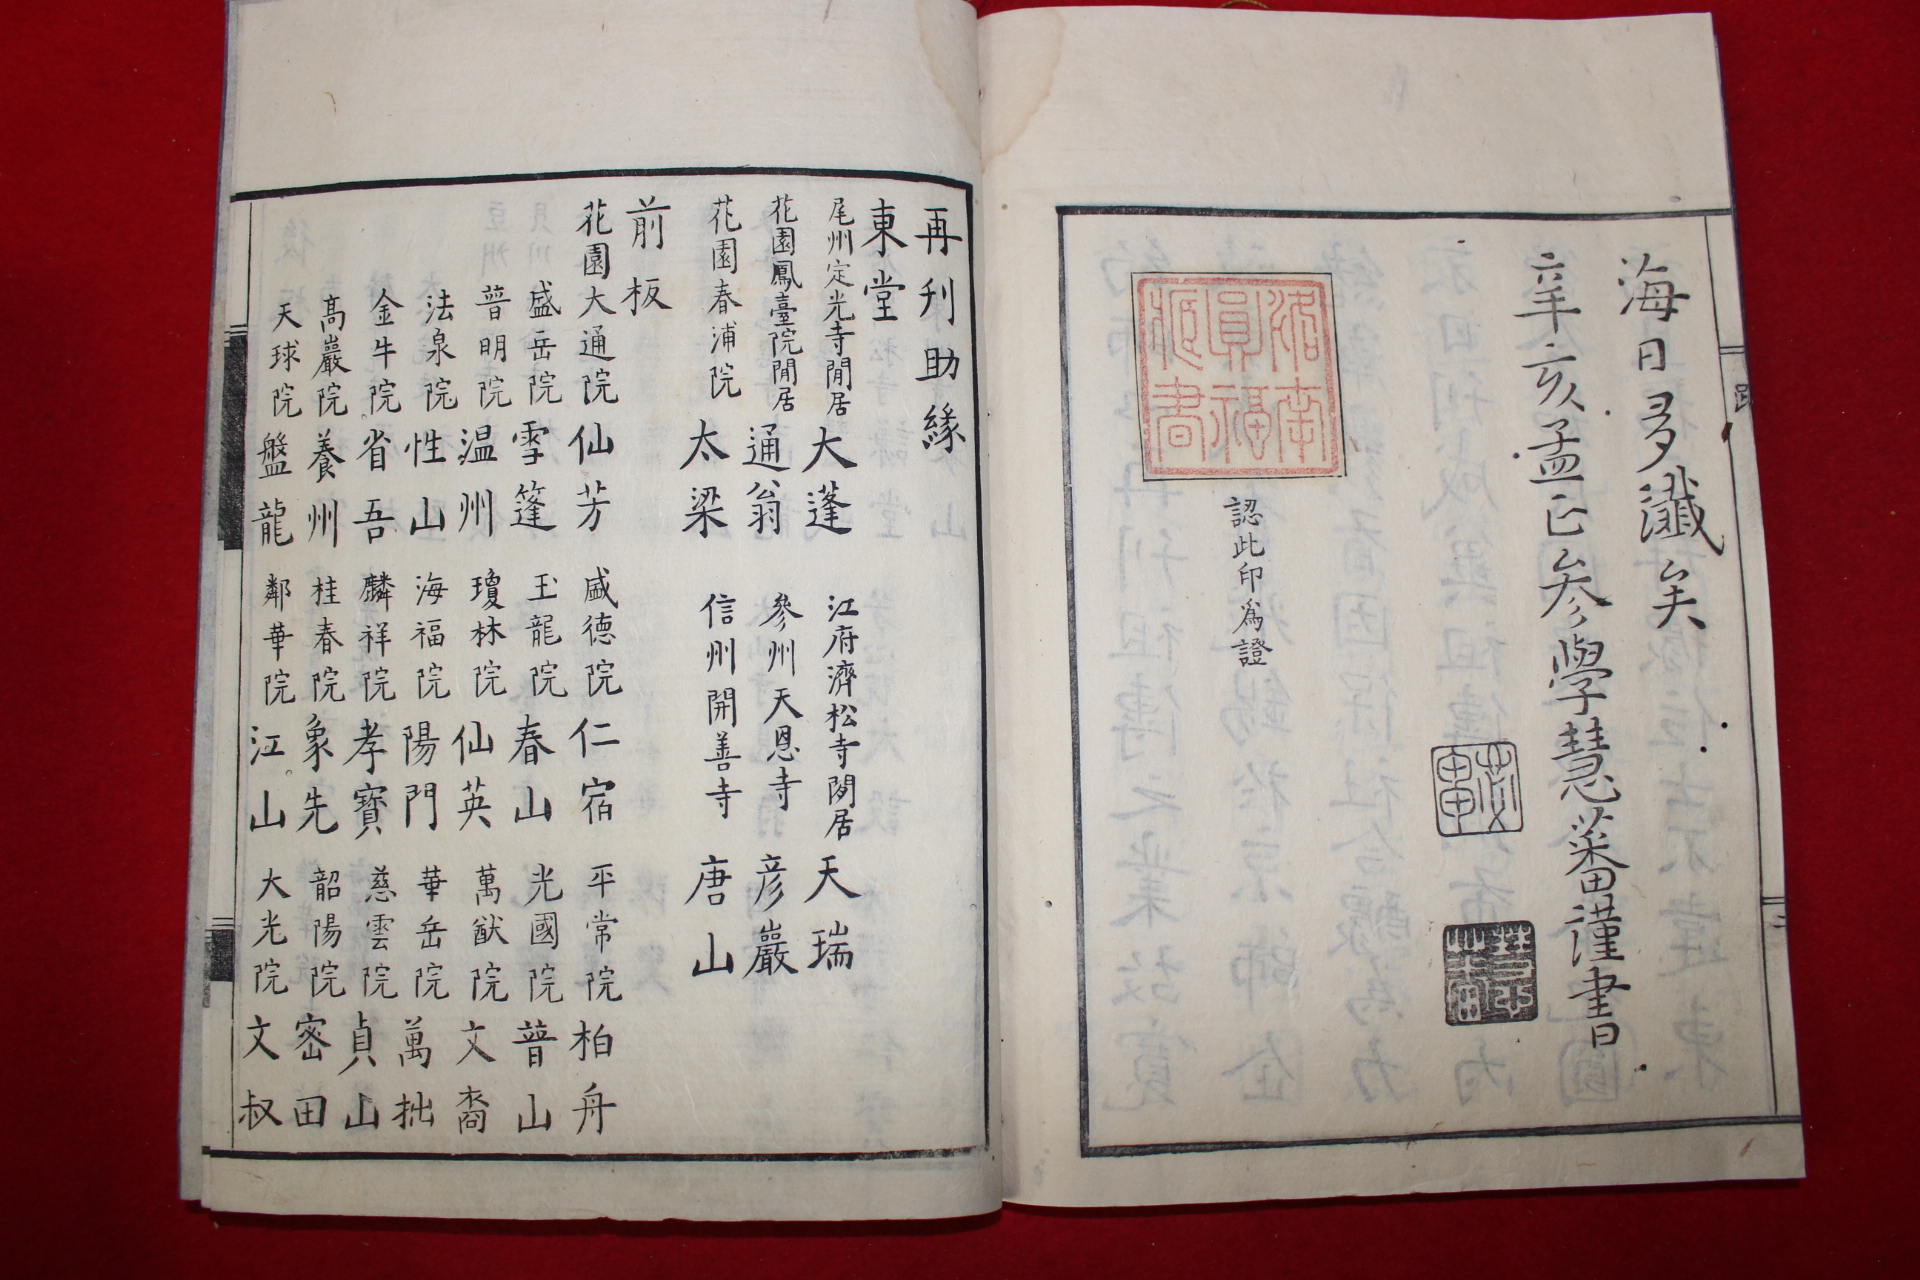 海日多讖矣
辛亥孟正參學慧蕃謹書
洛南
圓福
認此印為證
跋
再刋助緣
東堂
尾州定光寺閒居 大蓬 江府濟松寺閒居 天瑞
花園鳳臺院閒居 通翁 參州天恩寺 彦巖
花園春浦院 太梁 信州開善寺 唐山
前板
花園大通院 仙芳 盛德院 仁宿 平常院 柏舟
盛岳院 雪篷 玉龍院 春山 光國院 普山
普明院 温州 瓊林院 仙英 萬猷院 文裔
法泉院 性山 海福院 陽門 華岳院 萬拙
金牛院 省吾 麟祥院 孝寳 慈雲院 貞山
髙巖院 養州 桂春院 象先 韶陽院 密田
天球院 盤龍 鄰華院 江山 大光院 文叔